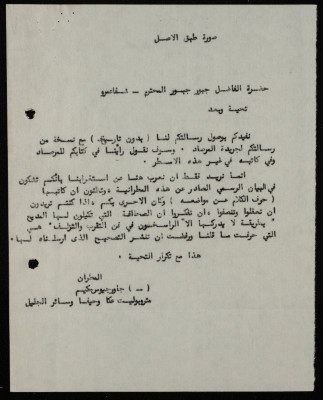 صورة طبق الاصل
حضرة الفاضل جبور جبور المحترم - شفاعمرو
تحية وبعد
نفيدكم بوصول رسالتكم لنا ( بدون تاريخ ) مع نسخة من
رسالتكم لجريدة المرصاد . وسوف نقول رأينا في كتابكم للمرصاد
وفي كاتبه في غير هذه الاسطر .
انما نريد فقط ان نعرب هنا عن استغرابنا بانكم تشكون
في البيان الرسمي الصادر عن هذه المطرانية وتدعون ان كاتبها
( حرف الكلام عن مواضعه ) وكان الاحرى بكم اذا كنتم تريدون
ان تعقلوا وتنصفوا ان تفكروا ان الصحافة التي تكيلون لها المديح
" بطريقة لا يدركها الا الراسخون في فن التقرب والتزلف " هي
التي حرفت ما قلنا ورفضت ان تنشر التصحيح الذي ارسلناه لها .
هذا مع تكرار التحية .
المطران
( -- ) جاورجيوس حكيم
متروبوليت عكا وحيفا وسائر الجليل